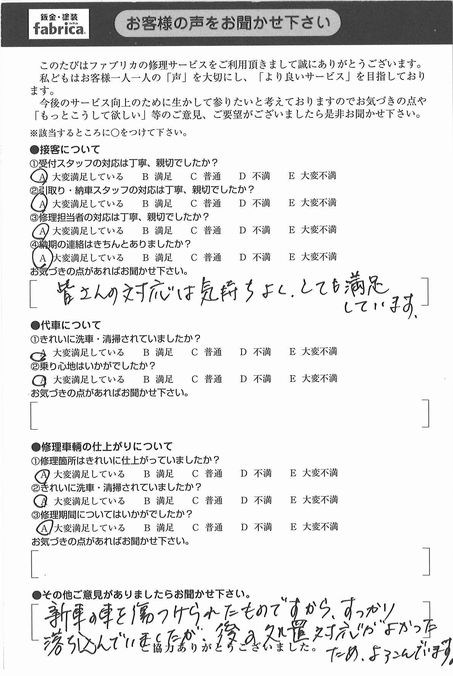 鈑金・塗装
fabrica.
お客様の声をお聞かせ下さい
このたびはファブリカの修理サービスをご利用頂きまして誠にありがとうございます。
私どもはお客様一人一人の「声」を大切にし、「より良いサービス」を目指しており
ます。
今後のサービス向上のために生かして参りたいと考えておりますのでお気づきの点や
「もっとこうして欲しい」等のご意見、ご要望がございましたら是非お聞かせ下さい。
※該当するところに○をつけて下さい。
●接客について
①受付スタッフの対応は丁寧、親切でしたか？
A 大変満足している B 満足 C 普通 D 不満 E 大変不満
②引取り・納車スタッフの対応は丁寧、親切でしたか？
A 大変満足している B 満足 C 普通 D 不満 E 大変不満
③修理担当者の対応は丁寧、親切でしたか？
A 大変満足している B 満足 C 普通 D 不満 E 大変不満
④納期の連絡はきちんとありましたか？
A 大変満足している B 満足 C 普通 D 不満 E 大変不満
お気づきの点があればお聞かせ下さい。
皆さんの対応は気持ちよく、とても満足
しています。
●代車について
①きれいに洗車・清掃されていましたか？
A 大変満足している B 満足 C 普通 D 不満 E 大変不満
②乗り心地はいかがでしたか？
A 大変満足している B 満足 C 普通 D 不満 E 大変不満
お気づきの点があればお聞かせ下さい。
●修理車輌の仕上がりについて
①修理箇所はきれいに仕上がっていましたか？
A 大変満足している B 満足 C 普通 D 不満 E 大変不満
②きれいに洗車・清掃されていましたか？
A 大変満足している B 満足 C 普通 D 不満 E 大変不満
③修理期間についてはいかがでしたか？
A 大変満足している B 満足 C 普通 D 不満 E 大変不満
お気づきの点があればお聞かせ下さい。
●その他ご意見がありましたらお聞かせ下さい。
新車の車を傷つけられたものですから、すっかり
落ち込んでいましたが、後の処置対応がよかった
ため、よろこんでいます。
協力ありがとうございました。